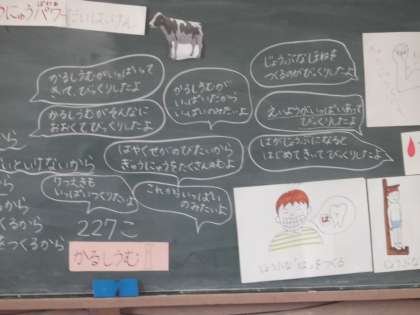 にゅうパワー
かるしうむがいっぱいって
きいて、びっくりしたよ
かるしうむがそんなに
おおくてびっくりしたよ
かるしうむが
いっぱいだから
いっぱいのみたいよ
じょうぶなほねを
つくるのがびっくりしたよ
えいようがいっぱいあって
びっくりしたよ
はやくせがのびたいから
ぎゅうにゅうをたくさんのむよ
はがじょうぶになると
はじめてきってびっくりしたよ
いといけないから
けつえきも
いっぱいつくりたいよ
これからいっぱい
のみたいよ
るから
をつくるから
227こ
かるしうむ
は
じょうぶな「は」をつくる